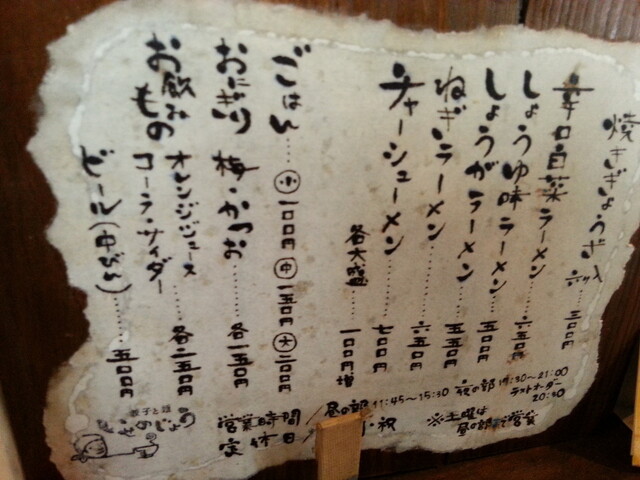 焼きぎょうざ 六ヶ入 三〇〇円
辛口白菜ラーメン……六五〇円
しょうゆ味ラーメン……五〇〇円
しょうがラーメン……五五〇円
ねぎラーメン……六五〇円
チャーシューメン……七〇〇円
各大盛……一〇〇円増
ごはん……㊥一五〇円 ㊅二〇〇円
おにぎり 梅・かつお……各一五〇円
お飲みもの オレンジジュース
コーラ・サイダー……各二五〇円
ビール(中びん)……五〇〇円
営業時間/昼の部 11:45〜15:30 夜の部 19:30〜21:00
ラストオーダー 20:30
定休日
・祝
※土曜は昼の部まで営業
餃子と麺